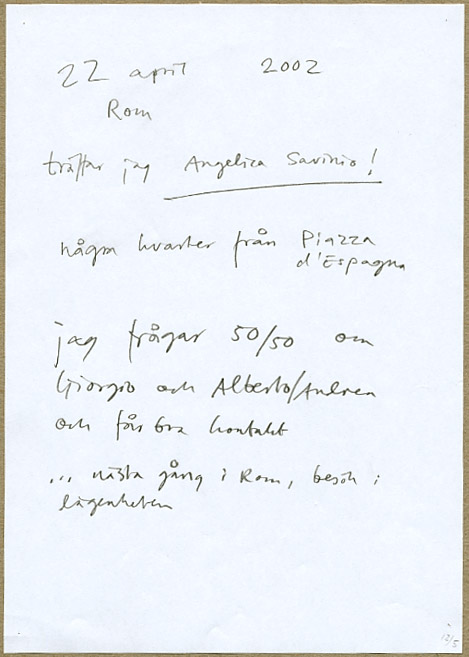 22 april 2002
Rom
träffar jag Angelica Savinio!
några kvarter från Piazza
d'Espagna
jag frågar 50/50 om
Giorgio och Alberto/Andrea
och får bra kontakt
... nästa gång i Rom, besök i
lägenheten
12/5